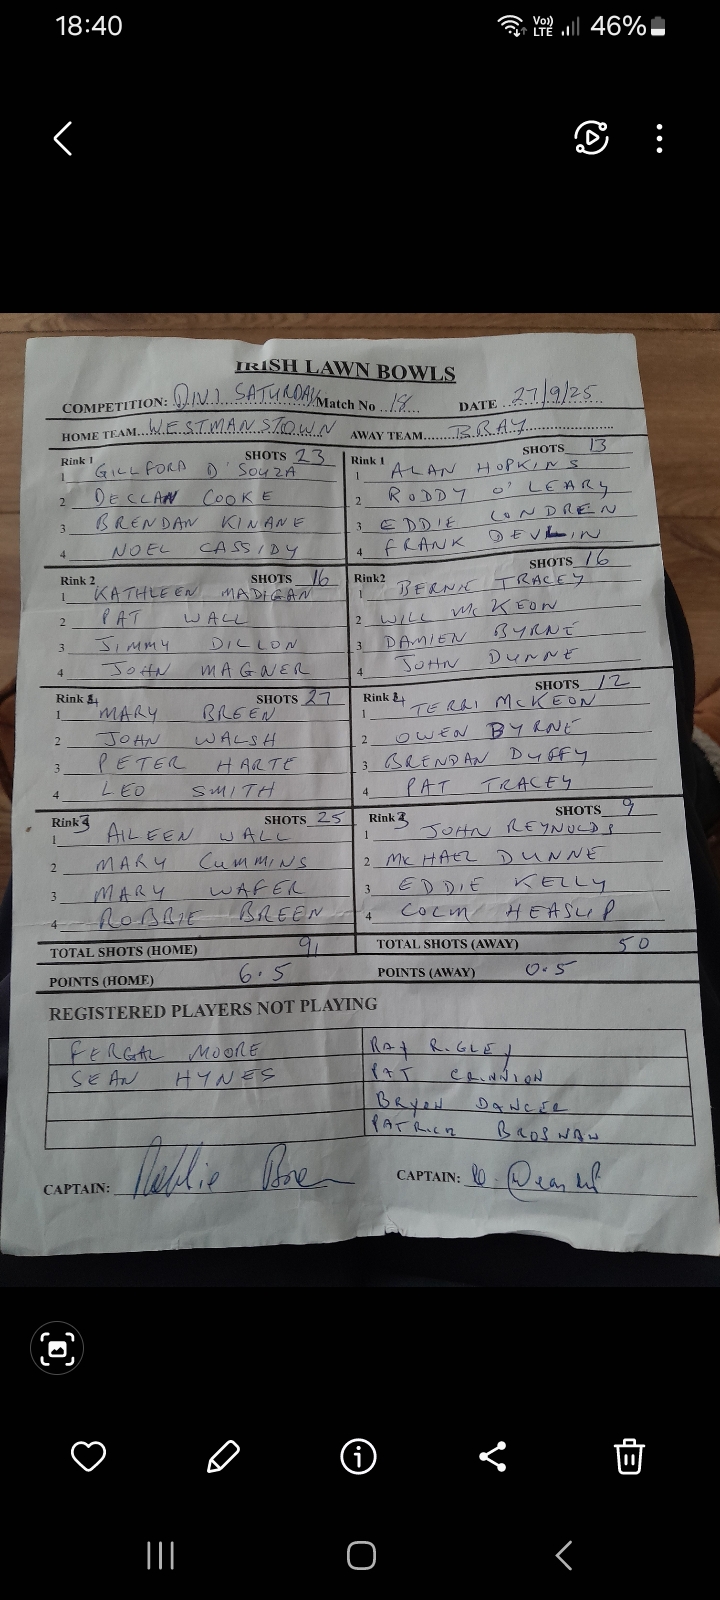 18:40
Vo)) LTE 46%
IRISH LAWN BOWLS
COMPETITION: DIV.1 SATURDAY Match No 18 DATE 27/9/25
HOME TEAM WESTMANSTOWN AWAY TEAM BRAY
Rink 1 SHOTS 23
1 GILLFORD D'SOUZA
2 DECLAN COOKE
3 BRENDAN KINANE
4 NOEL CASSIDY
Rink 1 SHOTS 13
1 ALAN HOPKINS
2 RODDY O'LEARY
3 EDDIE CONDREN
4 FRANK DEVLIN
Rink 2 SHOTS 16
1 KATHLEEN MADIGAN
2 PAT WALL
3 JIMMY DILLON
4 JOHN MAGNER
Rink2 SHOTS 16
1 BERNIE TRACEY
2 WILL McKEON
3 DAMIEN BYRNE
4 JOHN DUNNE
Rink 4 SHOTS 27
1 MARY BREEN
2 JOHN WALSH
3 PETER HARTE
4 LEO SMITH
Rink 4 SHOTS 12
1 TERRI McKEON
2 OWEN BYRNE
3 BRENDAN DUFFY
4 PAT TRACEY
Rink 3 SHOTS 25
1 AILEEN WALL
2 MARY CUMMINS
3 MARY WAFER
4 ROBBIE BREEN
Rink 3 SHOTS 9
1 JOHN REYNOLDS
2 MICHAEL DUNNE
3 EDDIE KELLY
4 COLM HEASLIP
TOTAL SHOTS (HOME) 91 TOTAL SHOTS (AWAY) 50
POINTS (HOME) 6.5 POINTS (AWAY) 0.5
REGISTERED PLAYERS NOT PLAYING
FERGAL MOORE RAY RIGLEY
SEAN HYNES PAT CRINNION
BRYAN DANCER
PATRICK BROSNAN
CAPTAIN: Robbie Breen CAPTAIN: